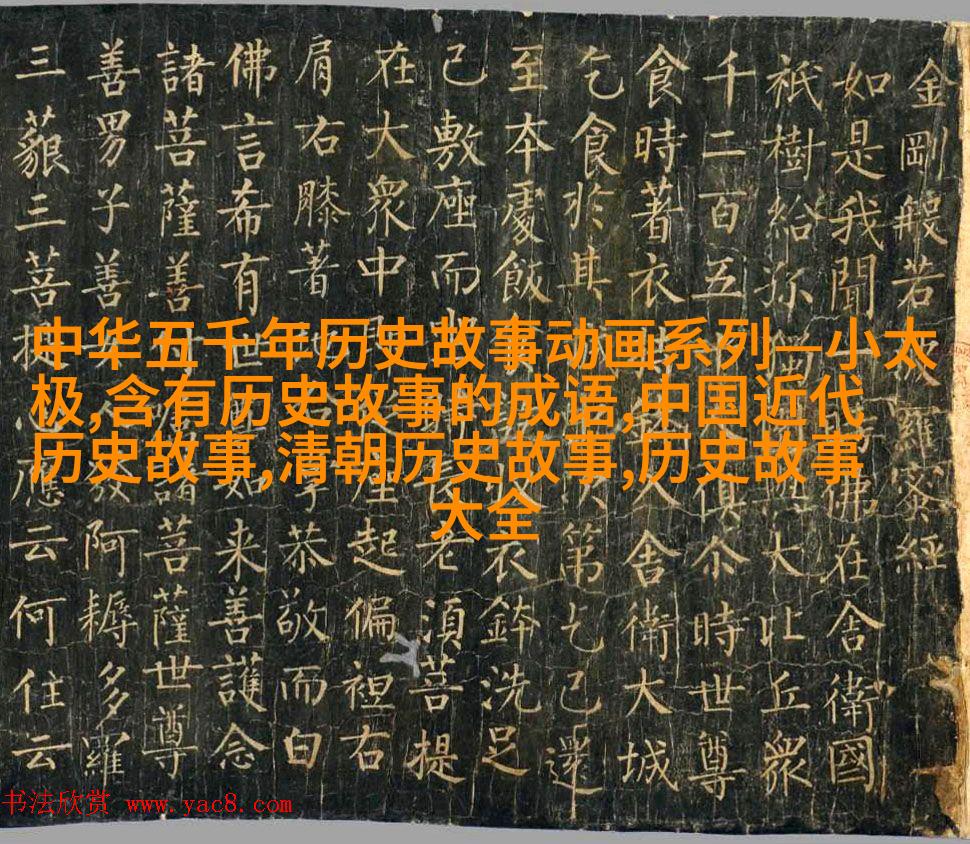 金剛般若波羅蜜經
如是我聞一時佛在舍衛國
祇樹給孤大比丘眾
千二百五十人俱尒時世尊
食時著衣入舍衛大城
乞食於其次第乞已還
至本處飯食衣鉢洗足
已敷座而坐長老須菩提
在大眾中座起偏袒右
肩右膝著地掌恭敬而白
佛言希有世如来善護念
諸菩薩善諸菩薩世尊
善男子善發阿耨多羅
三藐三菩提應云何住云
中华五千年历史故事动画系列—小太
极,含有历史故事的成语,中国近代
历史故事,清朝历史故事,历史故事
大全
书法欣赏 www.yac8.com